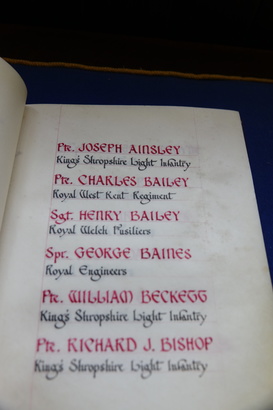 Pte. JOSEPH AINSLEY
King's Shropshire Light Infantry
Pte. CHARLES BAILEY
Royal West Kent Regiment
Sgt. HENRY BAILEY
Royal Welch Fusiliers
Spr. GEORGE BAINES
Royal Engineers
Pte. WILLIAM BECKETT
King's Shropshire Light Infantry
Pte. RICHARD J. BISHOP
King's Shropshire Light Infantry